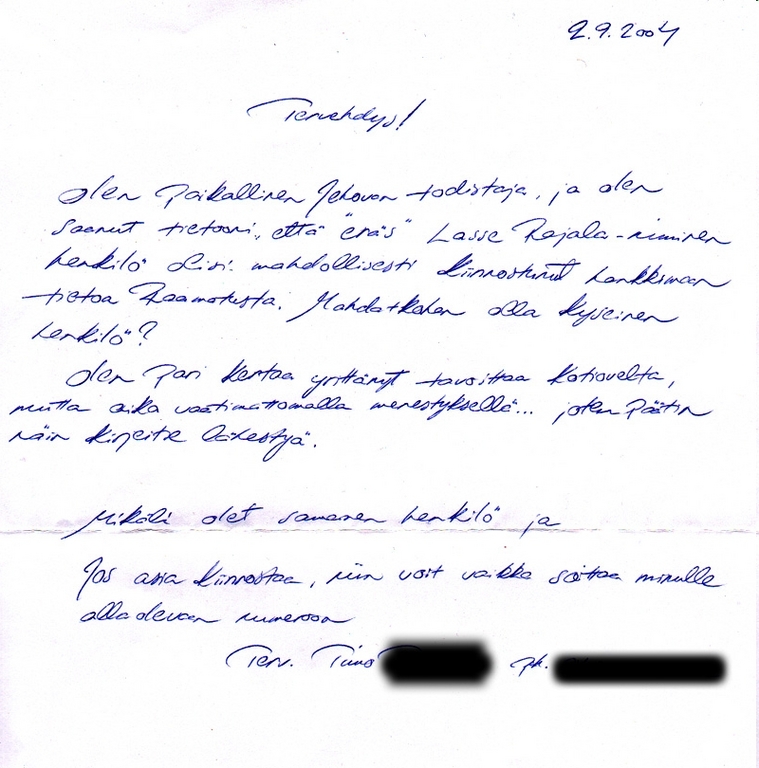 2.9.2004
Tervehdys!
Olen paikallinen Jehovan todistaja, ja olen
saanut tietooni, että "eräs" Lasse Rajala-niminen
henkilö olisi mahdollisesti kiinnostunut hankkimaan
tietoa Raamatusta. Mahdatkohan olla kyseinen
henkilö?
Olen pari kertaa yrittänyt tavoittaa kotiovelta,
mutta aika vaatimattomalla menestyksellä... joten päätin
näin kirjeitse lähestyä.
Mikäli olet samainen henkilö ja
Jos asia kiinnostaa, niin voit vaikka soittaa minulle
alla olevaan numeroon
Terv. Timo ph.